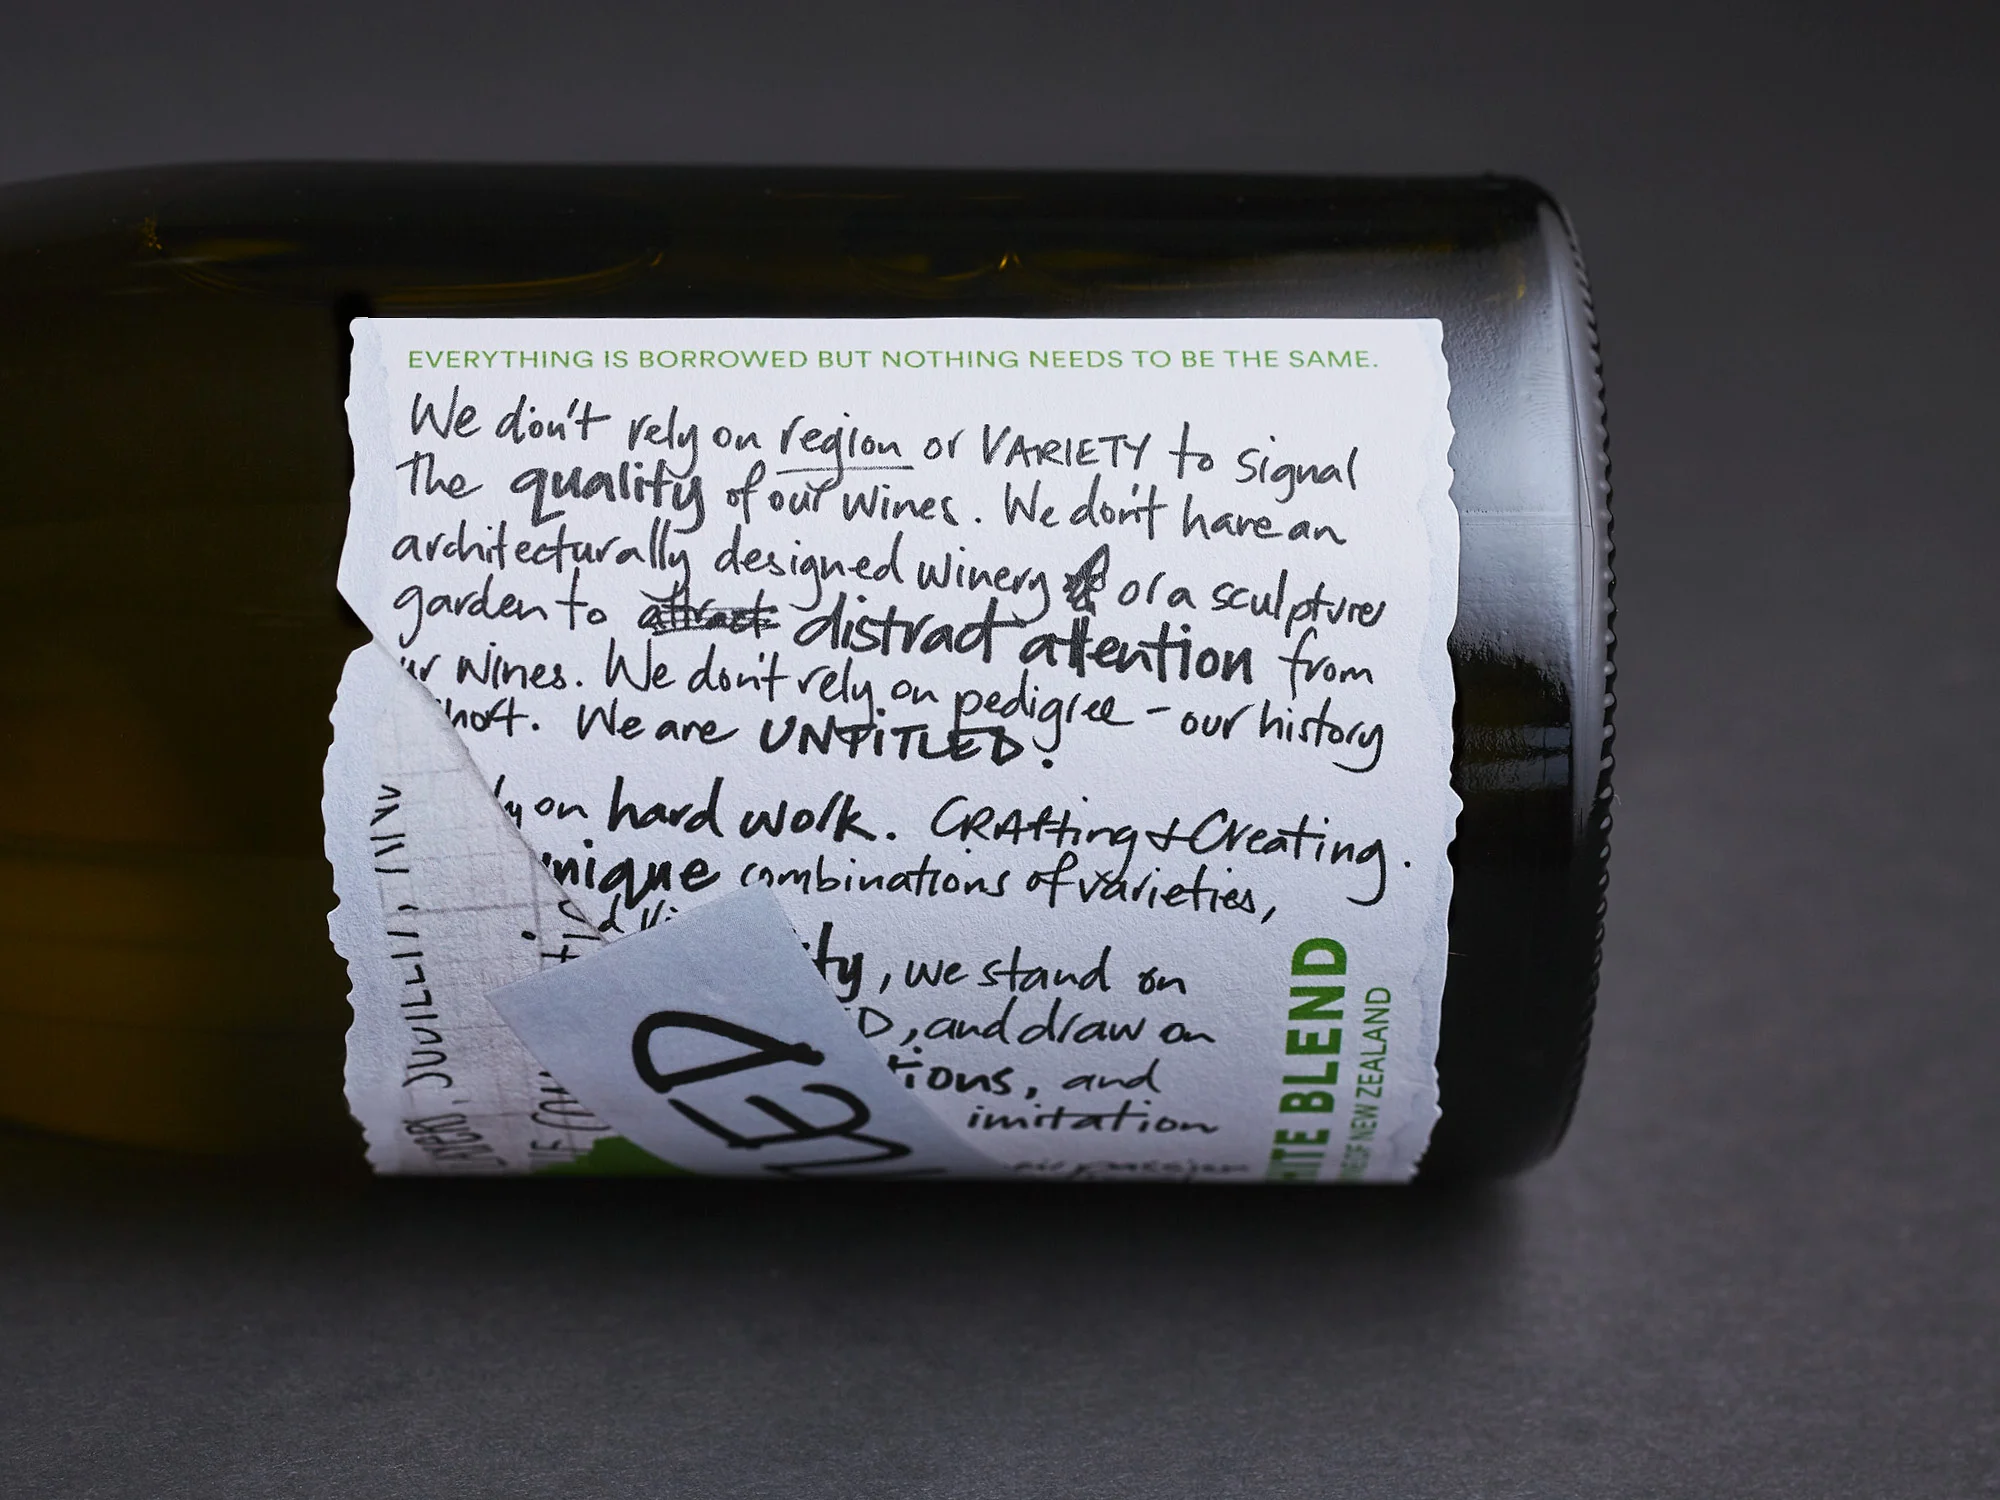 EVERYTHING IS BORROWED BUT NOTHING NEEDS TO BE THE SAME.
We don't rely on region or VARIETY to Signal
The quality of our wines. We don't have an
architecturally designed winery or a sculpture
garden to attract distract attention from
ur wines. We don't rely on pedigree - our history
short. We are UNTITLED.
ly on hard work. CRAfting & Creating.
unique combinations of varieties,
ty, we stand on
D, and draw on
tions, and
imitation
NED
ITE BLEND
INE OF NEW ZEALAND